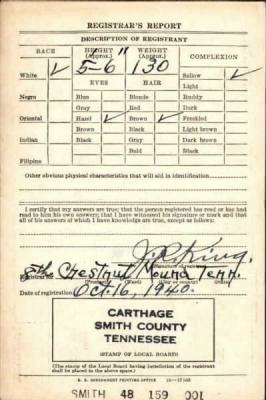 REGISTRAR'S REPORT
DESCRIPTION OF REGISTRANT
RACE HEIGHT (Approx.) " WEIGHT (Approx.) COMPLEXION
White ✓ 5-6 130 Sallow ✓
EYES HAIR Light
Negro Blue Blonde Ruddy
Gray Red Dark
Oriental Hazel ✓ Brown ✓ Freckled
Brown Black Light brown
Indian Black Gray Dark brown
Bald Black
Filipino
Other obvious physical characteristics that will aid in identification
I certify that my answers are true; that the person registered has read or has had
read to him his own answers; that I have witnessed his signature or mark and that
all of his answers of which I have knowledge are true, except as follows:
J. R. King.
(Signature of registrar)
Registrar for 8th Chestnut Mound Tenn.
(Precinct) (Ward) (City or county) (State)
Date of registration Oct. 16, 1940.
CARTHAGE
SMITH COUNTY
TENNESSEE
(STAMP OF LOCAL BOARD)
(The stamp of the Local Board having jurisdiction of the registrant
shall be placed in the above space.)
U. S. GOVERNMENT PRINTING OFFICE
SMITH 48 159 001